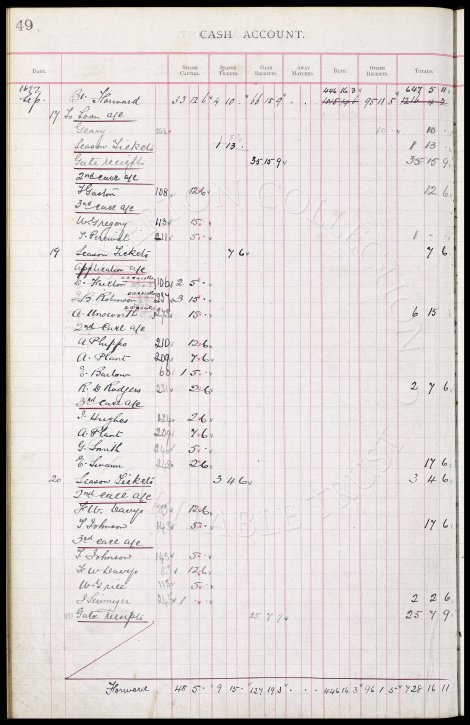 49
CASH ACCOUNT.
DATE. SHARE CAPITAL. SEASON TICKETS. GATE RECEIPTS. AWAY MATCHES. BANK. OTHER RECEIPTS. TOTALS.
446 16 3 647 5 11
Sep. Bt. Forward 4 10 16 15 9 95 11 5
17 To Loan a/c
Geary 10 10
Season Tickets 1 13 1 13
Gate receipts 35 15 9 35 15 9
2nd call a/c
108 12 6 12 6
3rd call a/c
W Gregory 113 15
T. Percival 211 5 1
19 Season Tickets 7 6 7 6
Application a/c
D. Hulton 106 2 5
J B Robinson 237 3 15
A. Unsworth 15 6 15
2nd Call a/c
A Phipps 210 12 6
A. Plant 209 7 6
E. Barlow 60 1 5
R. D Rodgers 2 6 2 7 6
3rd call a/c
J. Hughes 124 2 6
A. Plant 209 7 6
G. Smith 5
E. Swann 2 6 17 6
20 Season Tickets 3 4 6 3 4 6
2nd call a/c
F. W. Davys 83 12 6
T Johnson 149 5 17 6
3rd call a/c
T Johnson 149 5
F W Davys 83 12 6
W Grice 115 5
1 2 2 6
Gate receipts 25 7 9 25 7 9
Forward 48 5 9 15 127 19 3 446 16 3 96 1 5 728 16 11